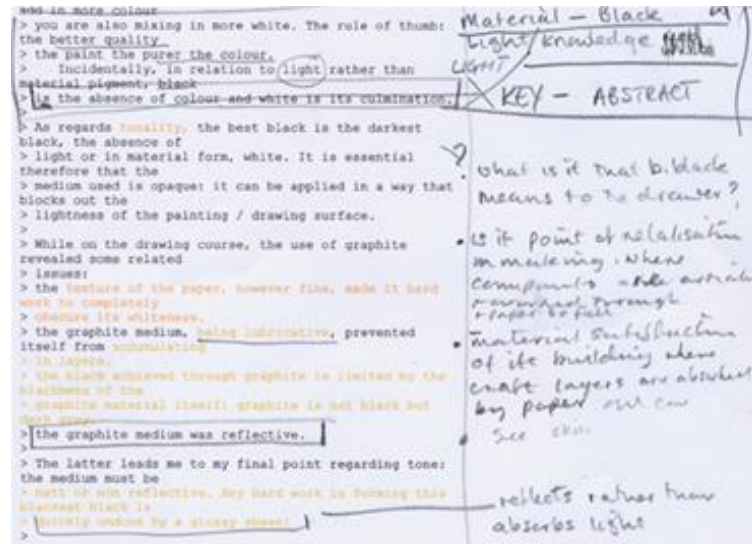 add in more colour
> you are also mixing in more white. The rule of thumb:
the better quality
> the paint the purer the colour.
> Incidentally, in relation to light rather than
material pigment, black
> is the absence of colour and white is its culmination.
>
> As regards tonality, the best black is the darkest
black, the absence of
> light or in material form, white. It is essential
therefore that the
> medium used is opaque: it can be applied in a way that
blocks out the
> lightness of the painting / drawing surface.
>
> While on the drawing course, the use of graphite
revealed some related
> issues:
> the texture of the paper, however fine, made it hard
work to completely
> obscure its whiteness.
> the graphite medium, being lubricative, prevented
itself from accumulating
> in layers.
> the black achieved through graphite is limited by the
blackness of the
> graphite material itself: graphite is not black but
dark grey.
> the graphite medium was reflective.
>
> The latter leads me to my final point regarding tone:
the medium must be
> matt or non reflective. Any hard work in forming this
blackest black is
> quickly undone by a glossy sheen!
>
Material - Black
Light/knowledge
LIGHT
KEY - ABSTRACT
? what is it that b.black
means to the drawer?
• is it point of
in making. Where
through
• material
of its building where
layers are absorbed
by paper and can
see
reflects rather than
absorbs light